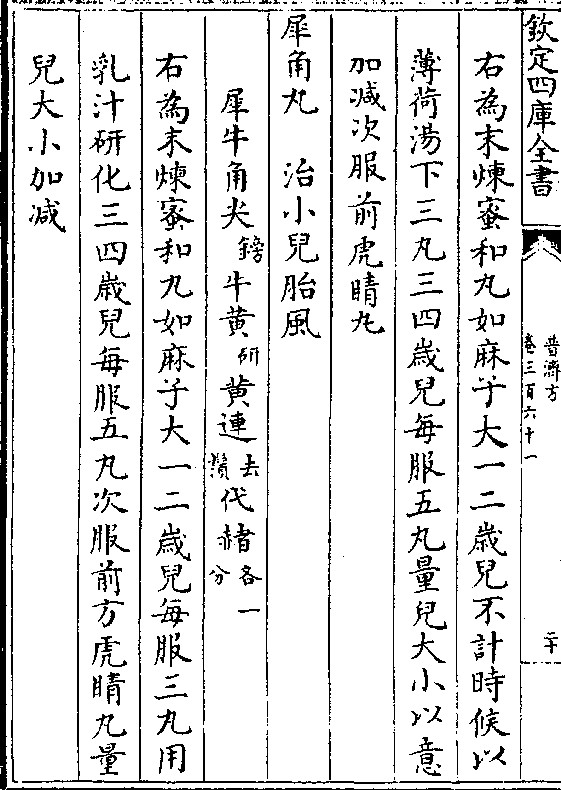 欽定四庫全書
普濟方
卷三百六十一
二十
右為末煉蜜和丸如麻子大一二歲兒不計時候以
薄荷湯下三丸三四歲兒每服五丸量兒大小以意
加减次服前虎睛丸
犀角丸　治小兒胎風
犀牛角尖鎊牛黄研黄連去鬚代赭各一分
右為末煉蜜和丸如麻子大一二歲兒每服三丸用
乳汁研化三四歲兒每服五丸次服前方虎睛丸量
兒大小加减